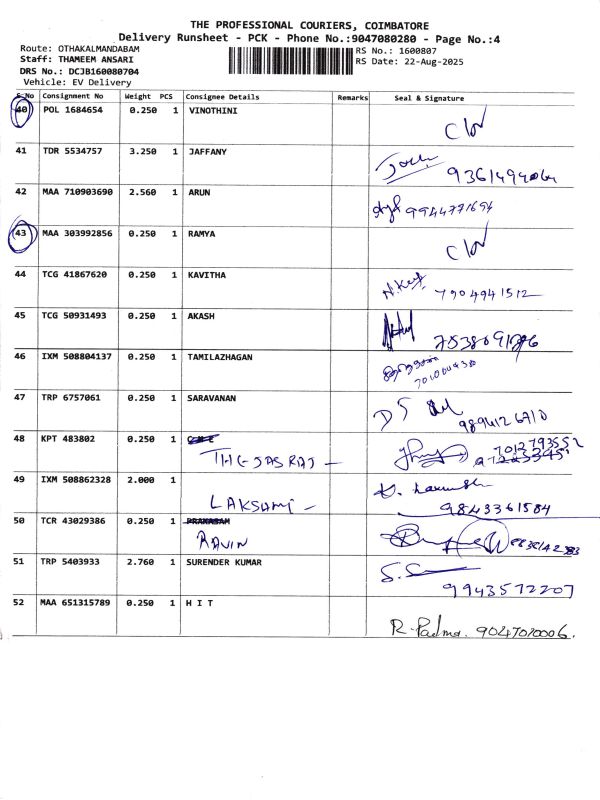 THE PROFESSIONAL COURIERS, COIMBATORE
Delivery Runsheet - PCK - Phone No.:9047080280 - Page No.:4
Route: OTHAKALMANDABAM
RS No.: 1600807
Staff: THAMEEM ANSARI
RS Date: 22-Aug-2025
DRS No.: DCJB160080704
Vehicle: EV Delivery
S.No Consignment No Weight PCS Consignee Details Remarks Seal & Signature
40 POL 1684654 0.250 1 VINOTHINI
41 TDR 5534757 3.250 1 JAFFANY
42 MAA 710903690 2.560 1 ARUN 9944771694
43 MAA 303992856 0.250 1 RAMYA
44 TCG 41867620 0.250 1 KAVITHA 7904941512
45 TCG 50931493 0.250 1 AKASH
46 IXM 508804137 0.250 1 TAMILAZHAGAN
47 TRP 6757061 0.250 1 SARAVANAN 9894126710
48 KPT 483802 0.250 1
THEJASRAJ -
49 IXM 508862328 2.000 1
LAKSHMI - 9843361584
50 TCR 43029386 0.250 1 PRAKASAM
RAVIN
51 TRP 5403933 2.760 1 SURENDER KUMAR 9943572207
52 MAA 651315789 0.250 1 H I T
R. Padma. 9047020006.